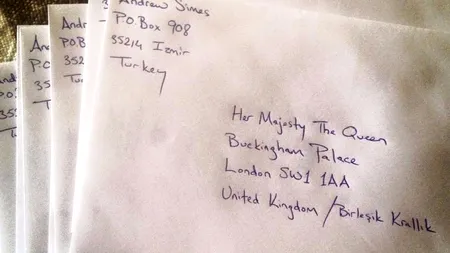 Andrew Simes
P.O. Box 908
35214 Izmir
Turkey
Her Majesty The Queen
Buckingham Palace
London SW1 1AA
United Kingdom / Birleşik Krallık
Andr
P.O.B
352
Tur
An
P.O
352
Tu